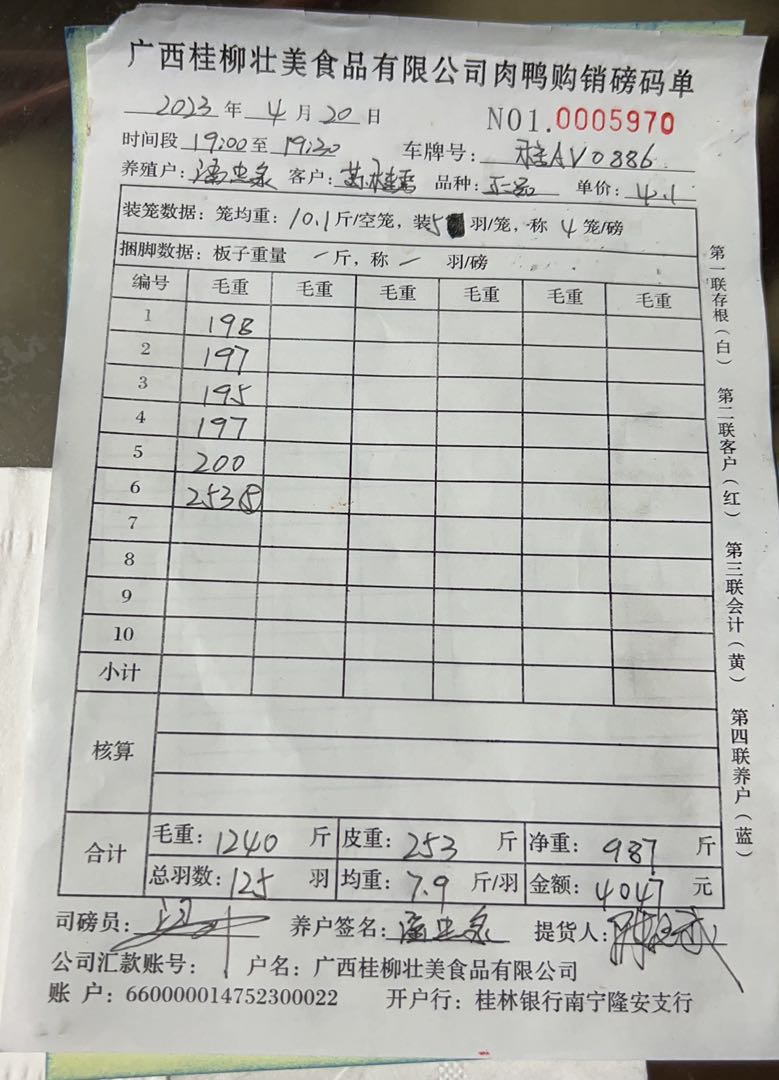 广西桂柳壮美食品有限公司肉鸭购销磅码单
2023 年 4 月 20 日 NO1.0005970
时间段 19:00 至 19:30 车牌号: 桂AV0886
养殖户: 潘忠泉 客户: 品种: 正品 单价: 4.1
装笼数据: 笼均重: 10.1 斤/空笼, 装 5 羽/笼, 称 4 笼/磅
捆脚数据: 板子重量 一 斤, 称 一 羽/磅
编号 毛重 毛重 毛重 毛重 毛重 毛重
1 198
2 197
3 195
4 197
5 200
6 253⑤
7
8
9
10
小计
核算
合计 毛重: 1240 斤 皮重: 253 斤 净重: 987 斤
总羽数: 125 羽 均重: 7.9 斤/羽 金额: 4047 元
司磅员: 养户签名: 潘忠泉 提货人:
公司汇款账号: 户名: 广西桂柳壮美食品有限公司
账 户: 660000014752300022 开户行: 桂林银行南宁隆安支行
第一联存根(白) 第二联客户(红) 第三联会计(黄) 第四联养户(蓝)